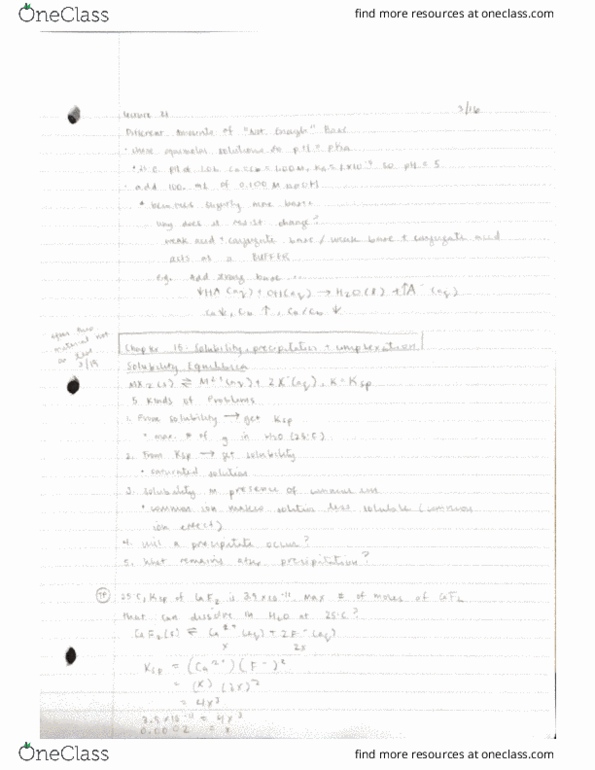 OneClass
find more resources at oneclass.com
Lecture 21
3/16
Different Amounts of "Not Enough" Base
add 100. mL of 0.100 M NaOH
becomes slightly more basic
why does it resist change?
weak acid + conjugate base / weak base + conjugate acid
acts as a BUFFER
e.g. Add strong base ...
↓HA (aq) + OH(aq) → H₂O(l) + ↑A⁻ (aq)
material not
3/19
Chapter 15: Solubility, precipitation + complexation
Solubility Equilibria
MX₂(s) ⇌ M²⁺(aq) + 2X⁻(aq), K = Ksp
5 Kinds of Problems
1. From solubility → get Ksp
• max. # of g in H₂O (25°C)
2. From Ksp → get solubility
• saturated solution
3. solubility in presence of common ion
• common ion makes solution less soluble (common
ion effect)
4. will a precipitate occur?
5. What remains after precipitation?
25°C, Ksp of CaF₂ is 3.9×10⁻¹¹. Max # of moles of CaF₂
that can dissolve in H₂O at 25°C?
CaF₂(s) ⇌ Ca²⁺(aq) + 2F⁻(aq)
x 2x
Ksp = (Ca²⁺)(F⁻)²
= (x)(2x)²
= 4x³
3.9×10⁻¹¹ = 4x³
0.0002 = x
OneClass
find more resources at oneclass.com